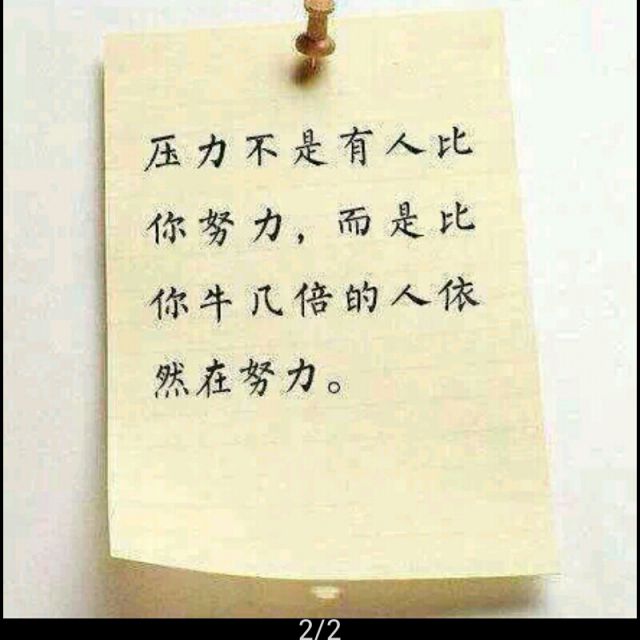 压力不是有人比
你努力，而是比
你牛几倍的人依
然在努力。
2/2